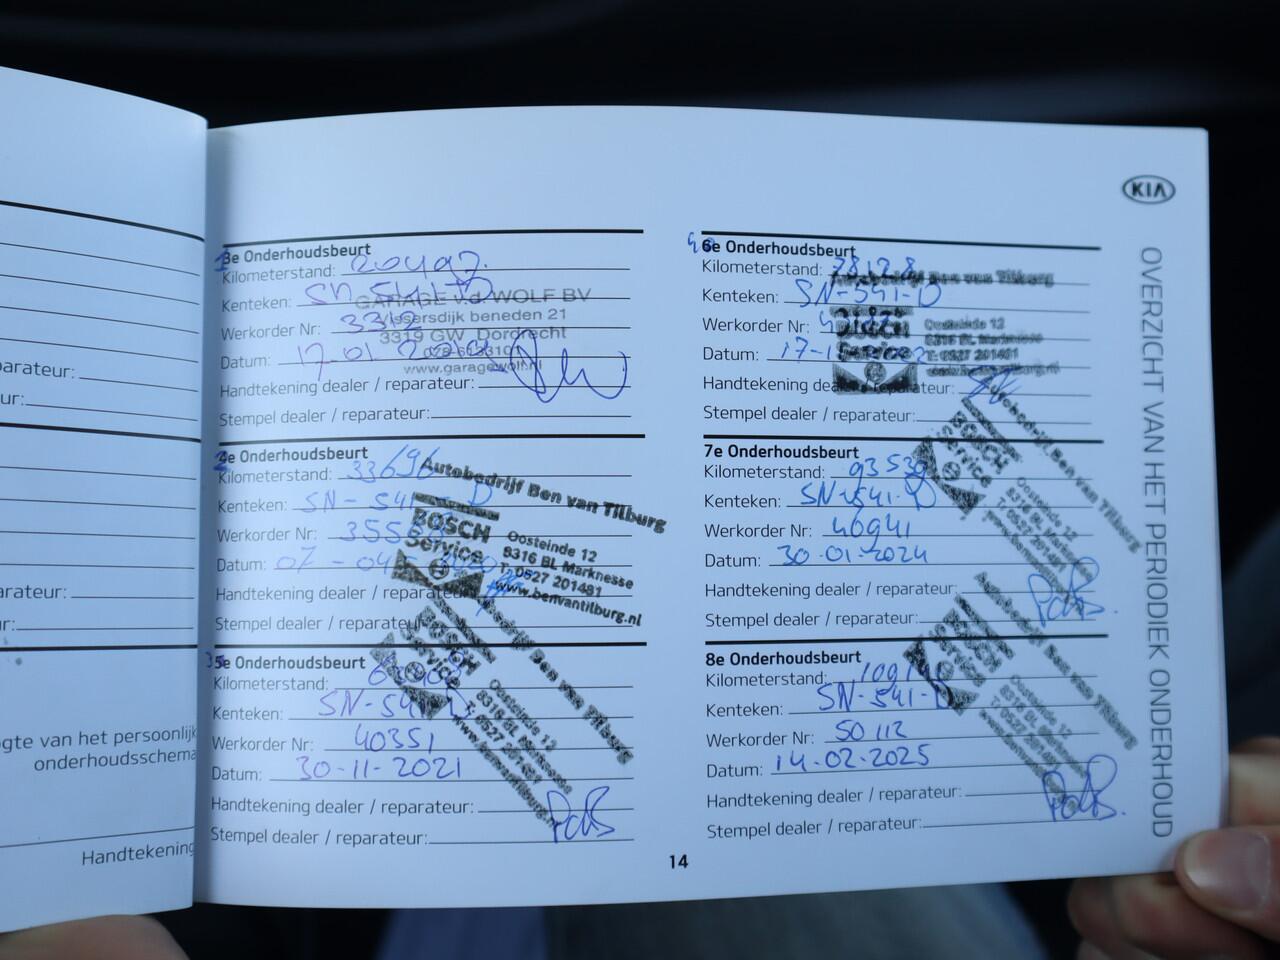 KIA
OVERZICHT VAN HET PERIODIEK ONDERHOUD
3e Onderhoudsbeurt
Kilometerstand: 20497.
Kenteken: SN-541-D
Werkorder Nr: 3312
Datum: 17-01
Handtekening dealer / reparateur:
Stempel dealer / reparateur:
GARAGE v.d. WOLF BV
Vissersdijk beneden 21
3319 GW Dordrecht
www.garagewolf.nl
4e Onderhoudsbeurt
Kilometerstand: 33696
Kenteken: SN-541-D
Werkorder Nr:
Datum: 07-04-
Handtekening dealer / reparateur:
Stempel dealer / reparateur:
Autobedrijf Ben van Tilburg
BOSCH
Service
Oosteinde 12
8316 BL Marknesse
T: 0527 201481
www.benvantilburg.nl
3
5e Onderhoudsbeurt
Kilometerstand:
Kenteken: SN-541-D
Werkorder Nr: 40351
Datum: 30-11-2021
Handtekening dealer / reparateur:
Stempel dealer / reparateur:
Autobedrijf Ben van Tilburg
BOSCH
Service
Oosteinde 12
8316 BL Marknesse
T: 0527 201481
www.benvantilburg.nl
6e Onderhoudsbeurt
Kilometerstand: 78128
Kenteken: SN-541-D
Werkorder Nr:
Datum: 17-1
Handtekening dealer / reparateur:
Stempel dealer / reparateur:
Autobedrijf Ben van Tilburg
BOSCH
Service
Oosteinde 12
8316 BL Marknesse
T: 0527 201481
www.benvantilburg.nl
7e Onderhoudsbeurt
Kilometerstand: 93530
Kenteken: SN-541-D
Werkorder Nr: 46941
Datum: 30-01-2024
Handtekening dealer / reparateur:
Stempel dealer / reparateur:
Autobedrijf Ben van Tilburg
BOSCH
Service
Oosteinde 12
8316 BL Marknesse
T: 0527 201481
8e Onderhoudsbeurt
Kilometerstand:
Kenteken: SN-541-D
Werkorder Nr: 50112
Datum: 14-02-2025
Handtekening dealer / reparateur:
Stempel dealer / reparateur:
Autobedrijf Ben van Tilburg
Service
Oosteinde 12
8316 BL Marknesse
T: 0527 201481
14
arateur:
ur:
arateur:
r:
gte van het persoonlijk
onderhoudsschema
Handtekening